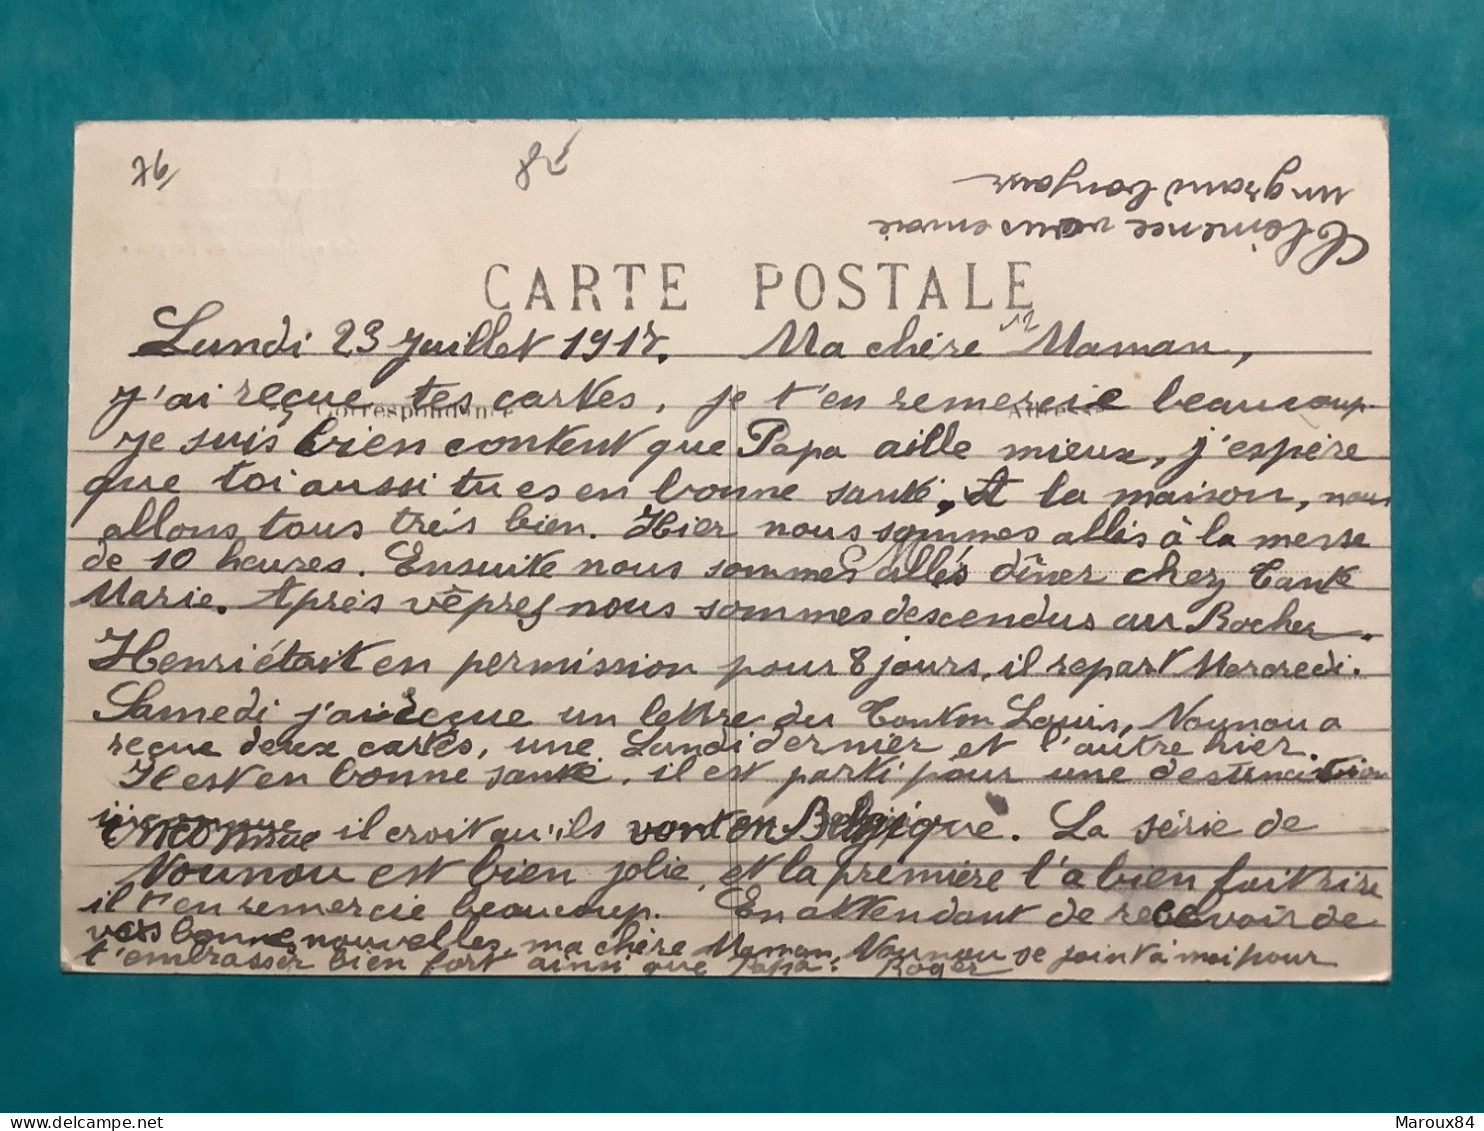 76
82
Clémence vous envoie
un grand bonjour
CARTE POSTALE
Lundi 23 Juillet 1917. Ma chère Maman,
Correspondance
Adresse
j'ai reçue tes cartes, je t'en remercie beaucoup.
je suis bien content que Papa aille mieux, j'espère
que toi aussi tu es en bonne santé, A la maison, nous
allons tous très bien. Hier nous sommes allés à la messe
de 10 heures. Ensuite nous sommes allés dîner chez Tante
Marie. Après vèpres nous sommes descendus au Rocher.
Henri était en permission pour 8 jours, il repart Mercredi.
Samedi j'ai reçue un lettre du Tonton Louis, Nounou a
reçue deux cartes, une Lundi dernier et l'autre hier.
Il est en bonne santé, il est parti pour une destination
inconnue il croit qu'ils vont en Belgique. La série de
Nounou est bien jolie, et la première l'a bien fait rire
il t'en remercie beaucoup. En attendant de recevoir de
vos bonnes nouvelles, ma chère Maman, Nounou se joint à moi pour
t'embrasser bien fort ainsi que Papa. Roger
Maroux84